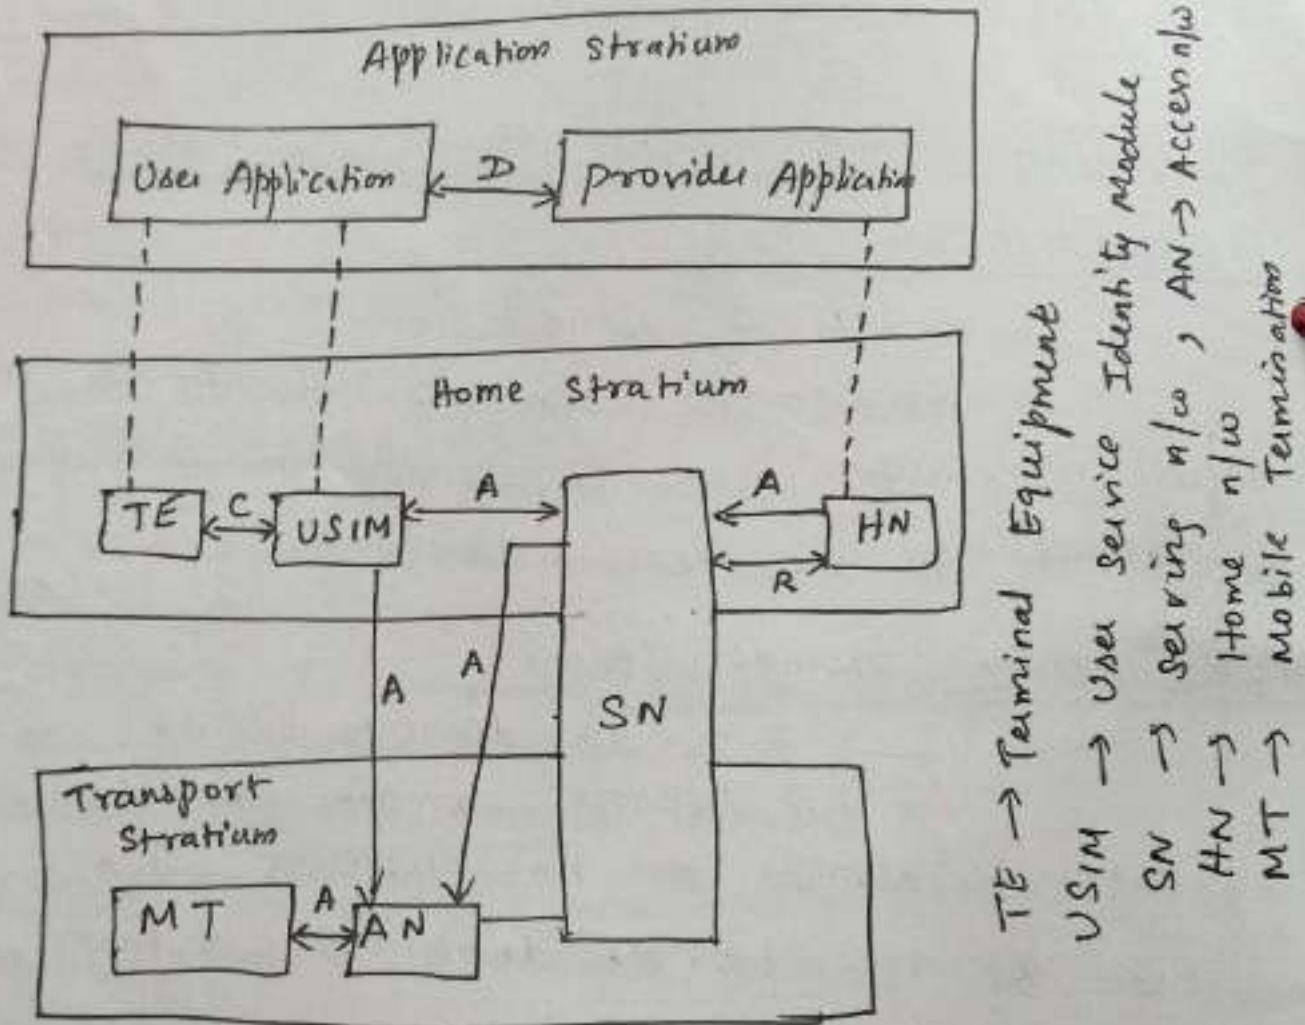 Application Stratium
User Application
D
Provider Application
Home Stratium
TE
C
USIM
A
A
HN
R
A
A
SN
Transport
Stratium
MT
A
AN
TE → Terminal Equipment
USIM → User Service Identity Module
SN → Serving n/w , AN → Access n/w
HN → Home n/w
MT → Mobile Termination